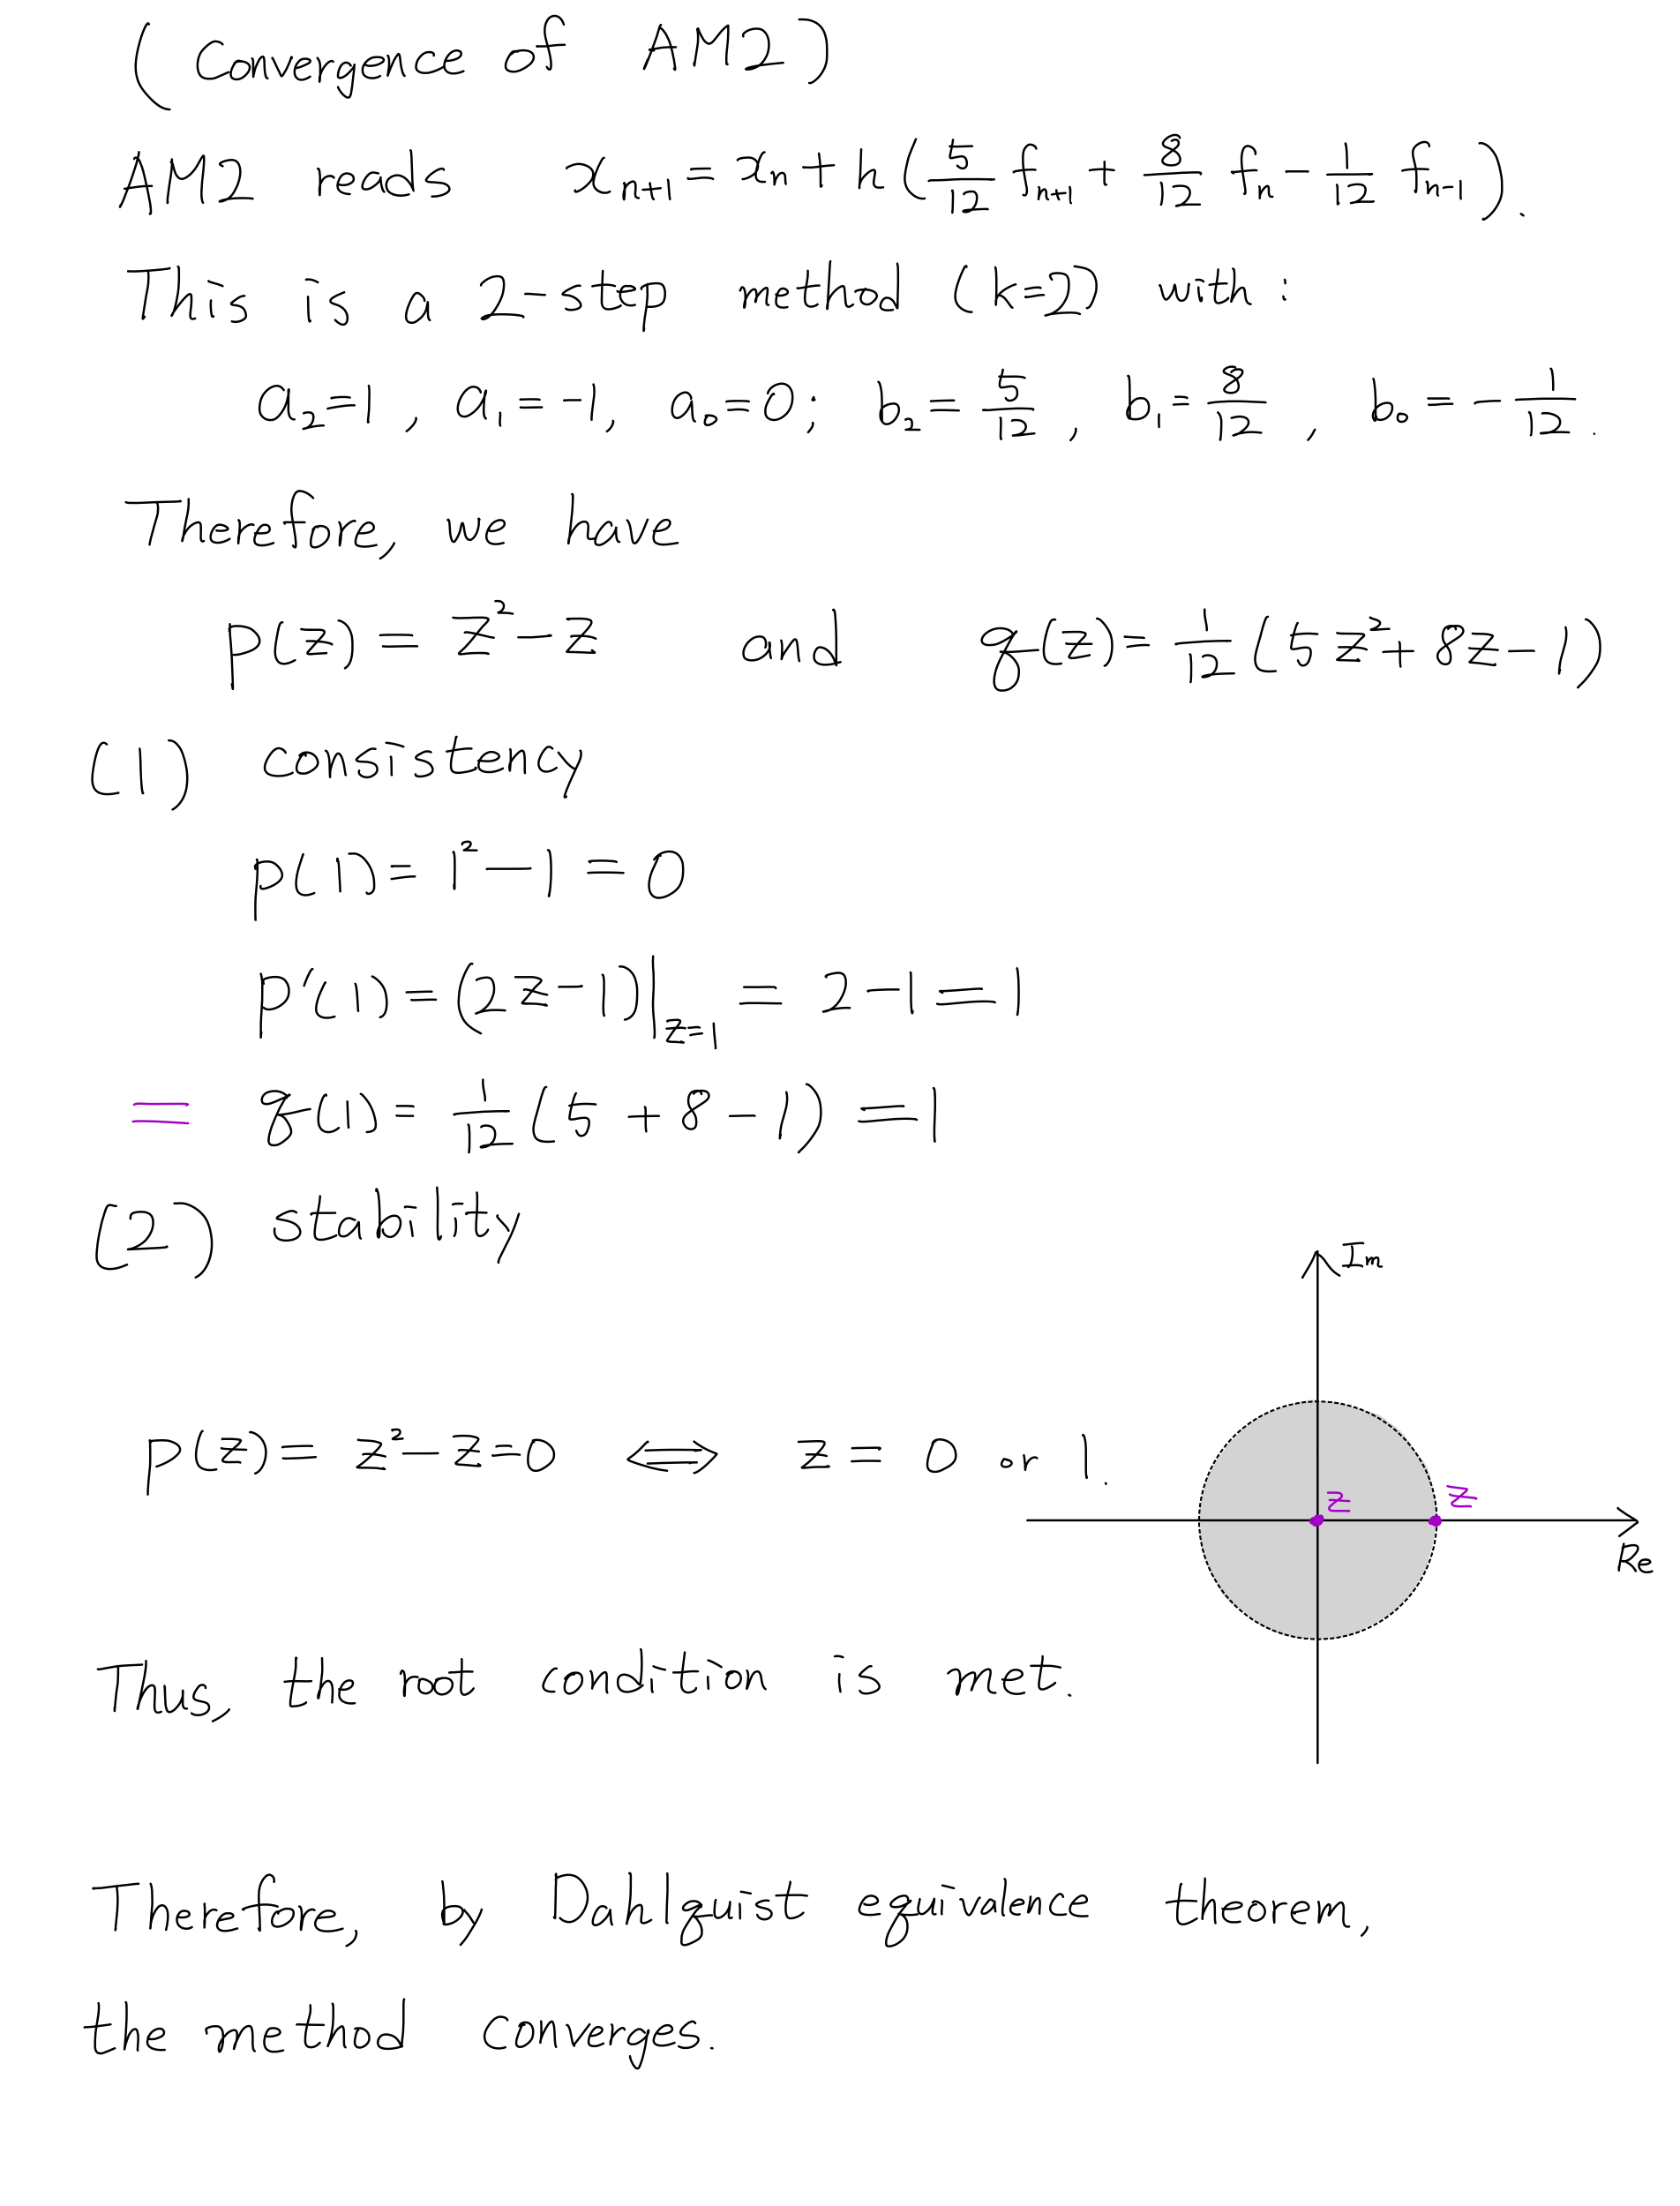 (Convergence of AM2)
AM2 reads x_{n+1} = x_n + h(5/12 f_{n+1} + 8/12 f_n - 1/12 f_{n-1}).
This is a 2-step method (k=2) with:
a_2=1, a_1=-1, a_0=0; b_2=5/12, b_1=8/12, b_0=-1/12.
Therefore, we have
p(z) = z²-z and q(z) = 1/12 (5z²+8z-1)
(1) consistency
p(1) = 1²-1 = 0
p'(1) = (2z-1)|_{z=1} = 2-1 = 1
= q(1) = 1/12 (5+8-1) = 1
(2) stability
Im
p(z) = z²-z=0 ⟺ z = 0 or 1.
z z
Re
Thus, the root condition is met.
Therefore, by Dahlquist equivalence theorem,
the method converges.